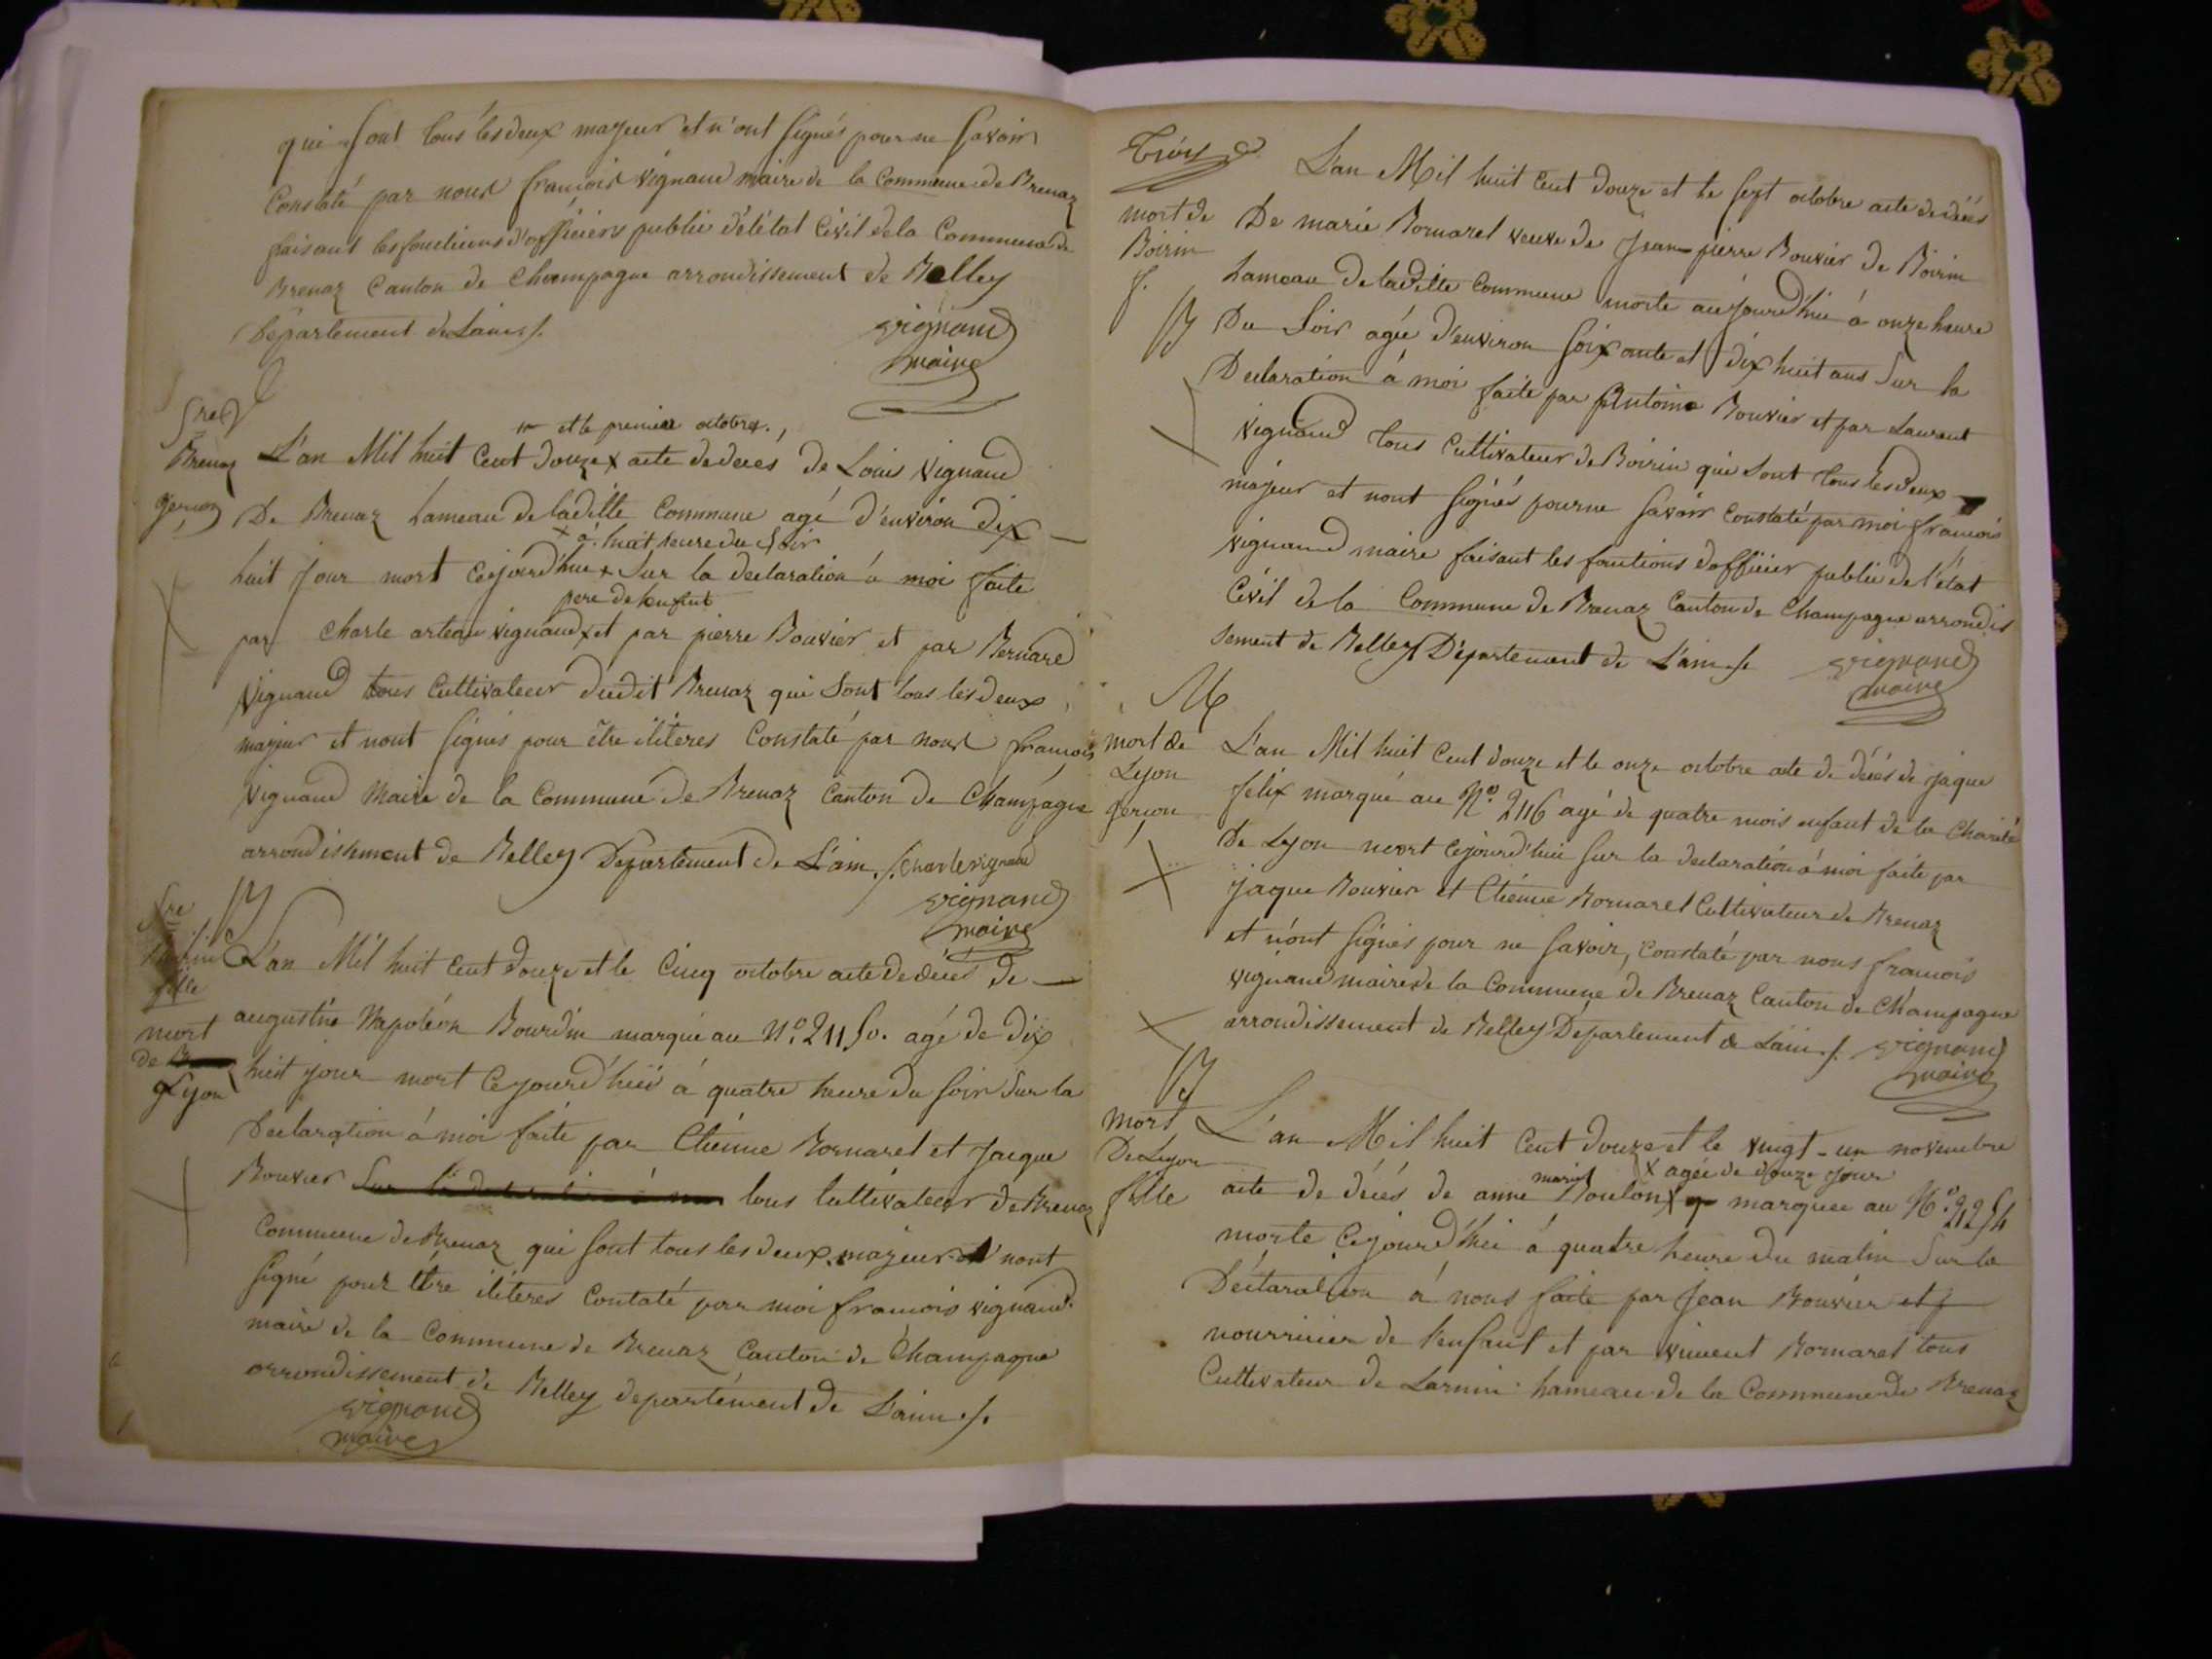 qui sont tous les deux majeur et n'ont signés pour ne savoir
Constaté par nous francois vignaud maire de la commune de Brenaz
faisant les fonctions d'officiers public de l'état Civil de la Commune de
Brenaz Canton de Champagne arrondissement de Belley
Département de Lain ./.
vignand
maire
Brenaz
garçon
et le premier octobre.
L'an Mil huit Cent douze x acte de deces de Louis vignaud
De Brenaz hameau de laditte Commune agé d'environ dix
x à huit heure du Soir
huit Jour mort Cejourd'hui x Sur la declaration à moi faite
pere de lenfant
par Charle arteau vignaud x et par pierre Bouvier et par Bernard
Vignaud tous Cultivateur dudit Brenaz qui Sont tous les deux
majeur et nont signés pour être iliteres Constaté par nous francois
Vignaud Maire de la Commune de Brenaz Canton de Champagne
arrondissement de Belley Departement de L'ain ./. Charle vignaud
vignand
maire
fille
mort
de
Lyon
L'an Mil huit Cent douze et le Cinq octobre acte de déces de
augustne Napoléon Bourdin marqué au N.o 2115o. agé de dix
huit jour mort Cejourd'hui à quatre heure du soir Sur la
Declaration à moi faite par Etienne Bornarel et Jacque
Bouvier Sur la declaration à moi tous Cultivateur de Brenaz
Commune de Brenaz qui sont tous les deux majeur et nont
signé pour être iliteres Contaté par moi francois vignaud
maire de la Commune de Brenaz Canton de Champagne
arrondissement de Belley departement de L'ain ./.
vignand
maire
Trois
mort de
Boirin
f.
L'an Mil huit Cent Douze et le sept octobre acte de déces
De marie Bornarel veuve de Jean-pierre Bouvier de Boirin
hameau de laditte Commune morte aujourd'hui à onze heure
Du Soir agée d'environ soixante et dix huit ans Sur la
Declaration à moi faite par Antoine Bouvier et par Laurent
Vignaud tous Cultivateur de Boirin qui Sont tous les deux
majeur et nont signés pour ne savoir Constaté par moi francois
vignaud maire faisant les fonctions d'officier public de l'état
Civil de la Commune de Brenaz Canton de Champagne arrondis
sement de Belley Département de L'ain ./.
vignand
maire
mort de
Lyon
garçon
L'an Mil huit Cent douze et le onze octobre acte de déces de jaque
felix marqué au N.o 2116 agé de quatre mois enfant de la Charité
De Lyon mort Cejourd'hui sur la declaration à moi faite par
jaque Bouvier et Etienne Bornarel Cultivateur de Brenaz
et n'ont signés pour ne savoir, Constaté par nous francois
vignaud maire de la Commune de Brenaz Canton de Champagne
arrondissement de Belley Departement de Lain ./.
vignand
maire
mort
De Lyon
fille
L'an Mil huit Cent douze et le vingt-un novembre
marie x agée de douze jour
acte de déces de anne Boulon x marquée au N.o 2125h
morte Cejourd'hui à quatre heure du matin Sur la
Déclaration à nous faite par Jean Bouvier et
nourricier de l'enfant et par vincent Bornarel tous
Cultivateur de Larnin hameau de la Commune de Brenaz